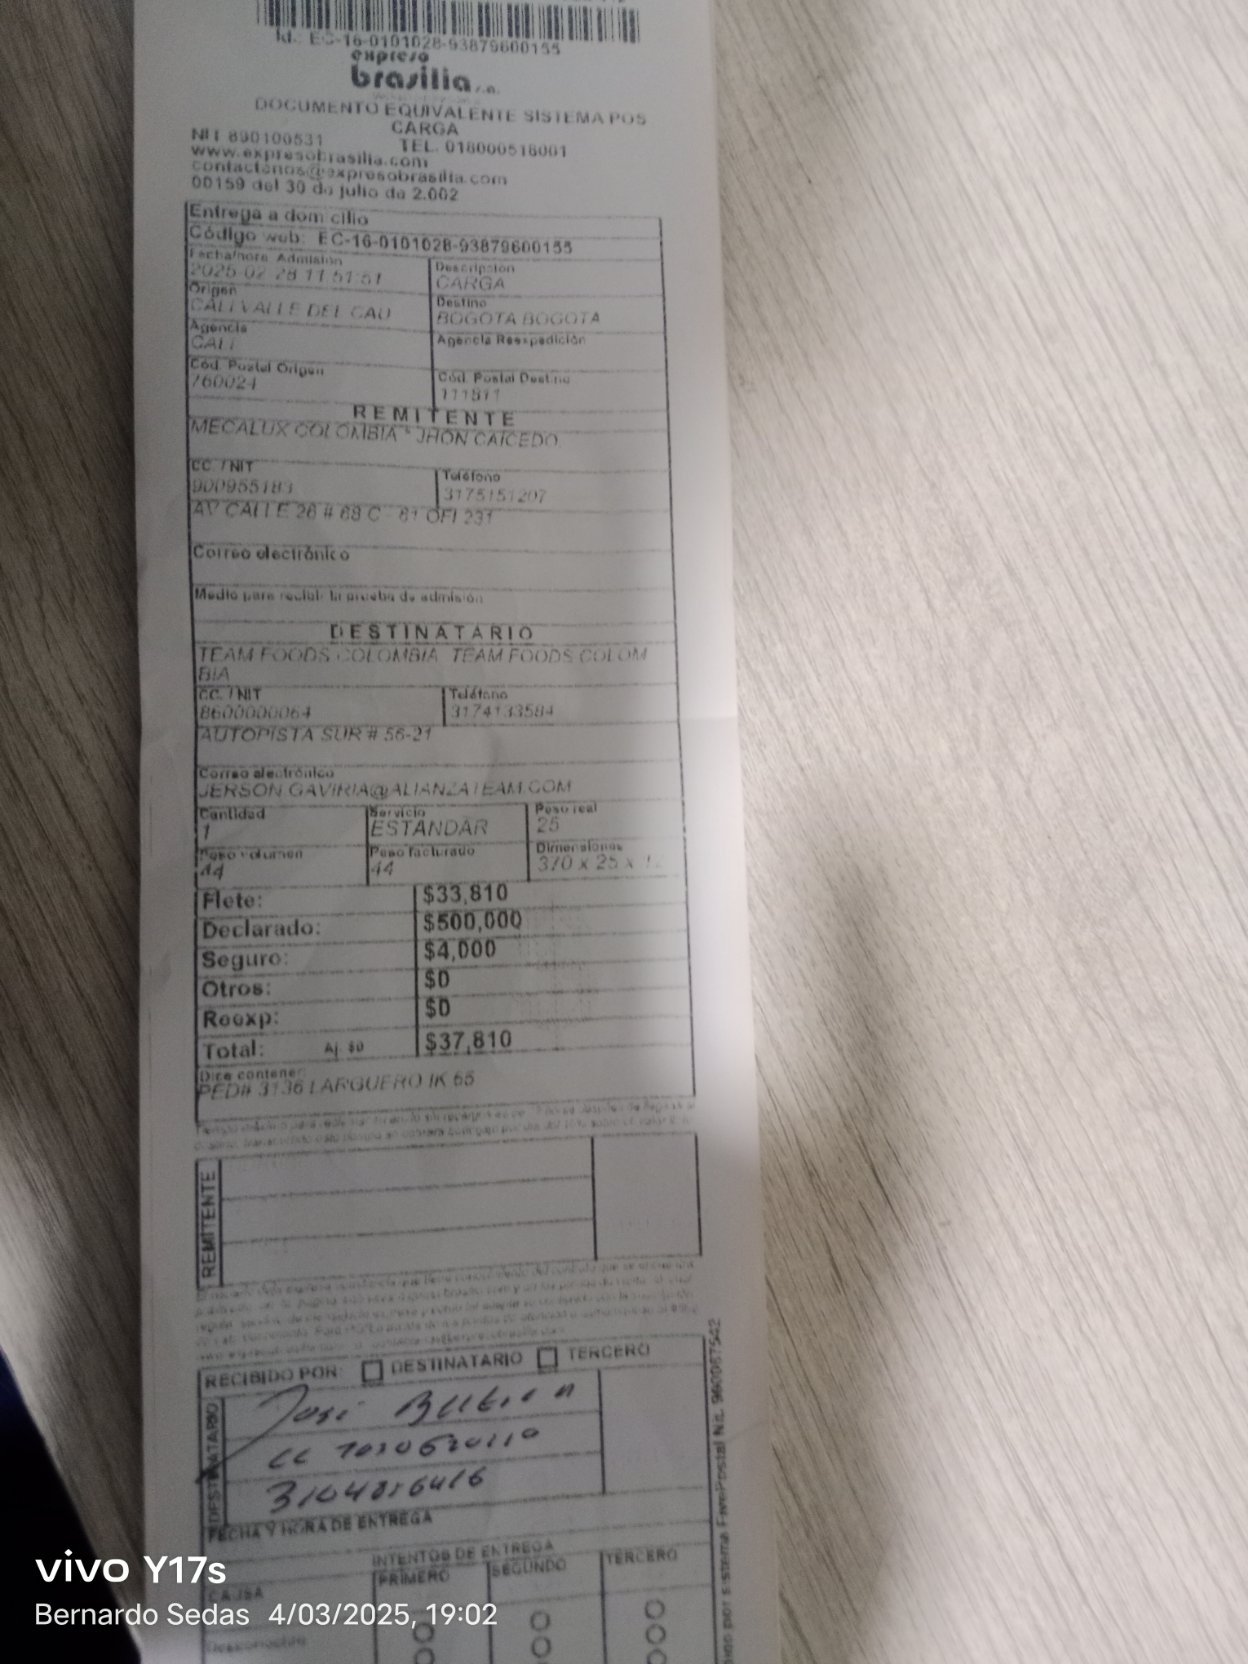 Id.: EC-16-0101028-93879600155
expreso
brasilia s.a.
DOCUMENTO EQUIVALENTE SISTEMA POS
CARGA
NIT 890100531 TEL. 018000518001
www.expresobrasilia.com
contactenos@expresobrasilia.com
00159 del 30 de julio de 2.002
Entrega a domicilio
Código web: EC-16-0101028-93879600155
Fecha/hora Admisión Descripción
2025-02-28 11:51:51 CARGA
Origen Destino
CALI VALLE DEL CAU BOGOTA BOGOTA
Agencia Agencia Reexpedición
CALI
Cód. Postal Origen Cód. Postal Destino
760024 111811
REMITENTE
MECALUX COLOMBIA * JHON CAICEDO
CC. / NIT Teléfono
900955183 3175151207
AV CALLE 26 # 68 C - 61 OFI 231
Correo electrónico
Medio para recibir la prueba de admisión
DESTINATARIO
TEAM FOODS COLOMBIA TEAM FOODS COLOM
BIA
CC. / NIT Teléfono
8600000064 3174133584
AUTOPISTA SUR # 56-21
Correo electrónico
JERSON.GAVIRIA@ALIANZATEAM.COM
Cantidad Servicio Peso real
1 ESTANDAR 25
Peso volumen Peso facturado Dimensiones
44 44 370 x 25 x
Flete: $33,810
Declarado: $500,000
Seguro: $4,000
Otros: $0
Reexp: $0
Total: Aj. $0 $37,810
Dice contener
PED# 3136 LARGUERO IK 65
REMITENTE
RECIBIDO POR: DESTINATARIO TERCERO
DESTINATARIO
José
CC 1030620110
3104816416
FECHA Y HORA DE ENTREGA
INTENTOS DE ENTREGA
CAUSA PRIMERO SEGUNDO TERCERO
Desconocido
vivo Y17s
Bernardo Sedas 4/03/2025, 19:02